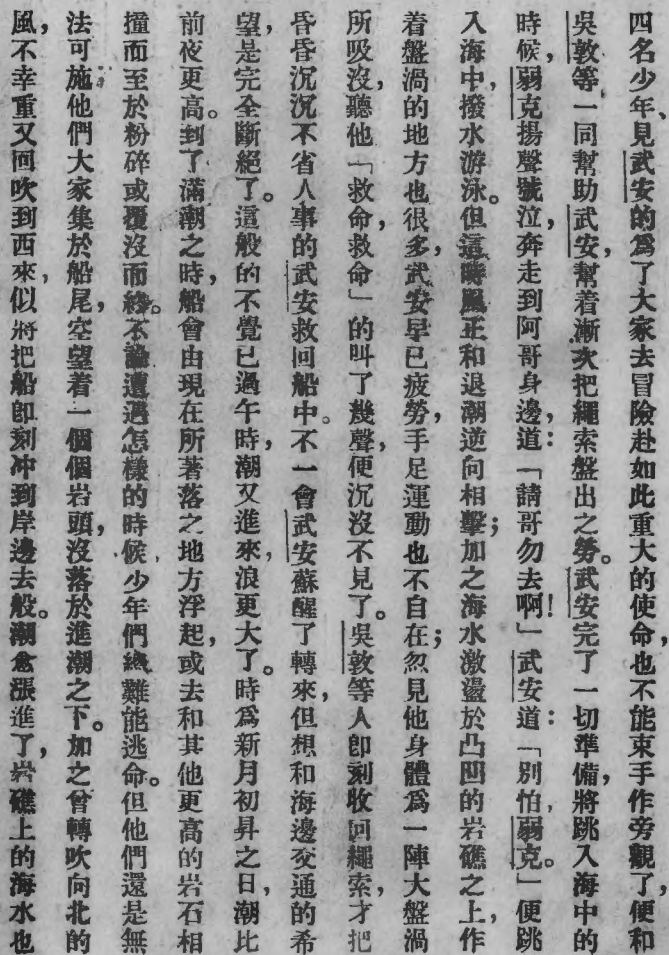 四名少年、見武安的爲了大家去冒險赴如此重大的使命，也不能束手作旁觀了，便和
吳敦等一同幫助武安，幫着漸次把繩索盤出之勞。武安完了一切準備，將跳入海中的
時候，弱克揚聲號泣，奔走到阿哥身邊，道：「請哥勿去啊！」武安道：「別怕，弱克。」便跳
入海中，撥水游泳。但這時風正和退潮逆向相擊；加之海水激盪於凸凹的岩礁之上，作
着盤渦的地方也很多，武安早已疲勞，手足運動也不自在；忽見他身體爲一陣大盤渦
所吸沒，聽他「救命，救命」的叫了幾聲，便沉沒不見了。吳敦等人即刻收回繩索，才把
昏昏沉沉不省人事的武安救回船中。不一會武安蘇醒了轉來，但想和海邊交通的希
望，是完全斷絕了。這般的不覺已過午時，潮又進來，浪更大了。時爲新月初昇之日，潮比
前夜更高。到了滿潮之時，船會由現在所著落之地方浮起，或去和其他更高的岩石相
撞而至於粉碎或覆沒而終。不論遭遇怎樣的時候，少年們終難能逃命。但他們還是無
法可施他們大家集於船尾，空望着一個個岩頭，沒落於進潮之下。加之曾轉吹向北的
風，不幸重又回吹到西來，似將把船即刻冲到岸邊去般。潮愈漲進了，岩礁上的海水也